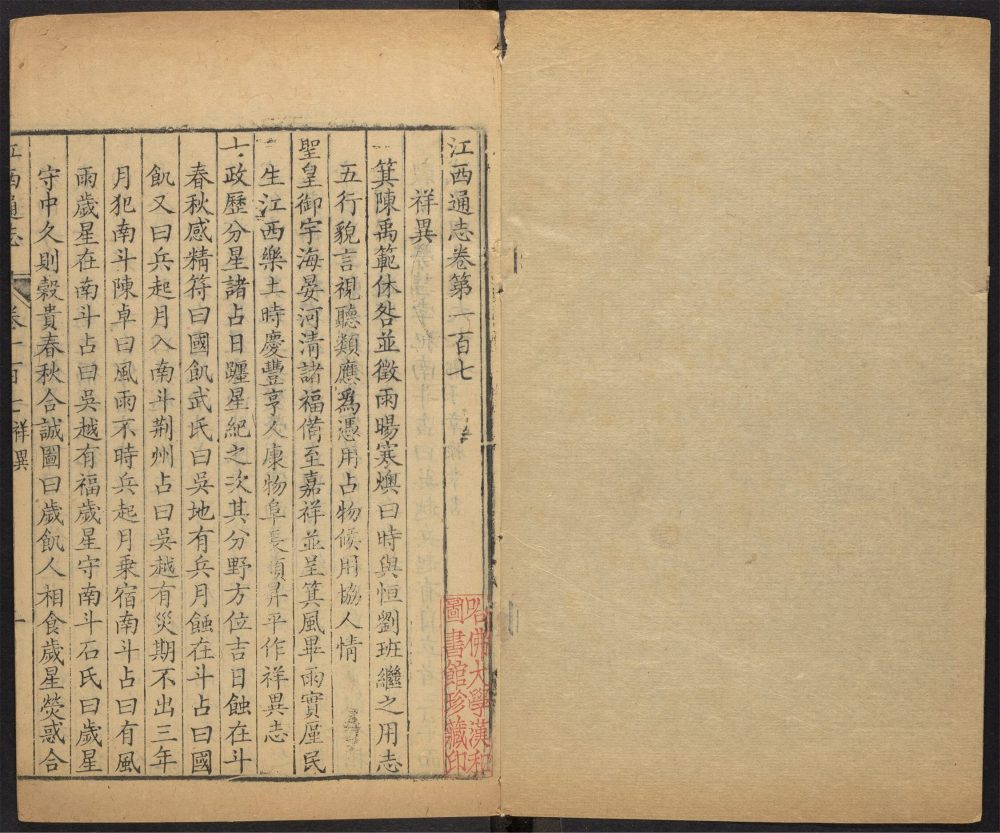 江西通志卷第一百七
祥異
箕陳禹範休咎並徵雨暘寒燠曰時與恒劉班繼之用志
五行貌言視聽類應爲憑用占物候用協人情
聖皇御宇海晏河清諸福備至嘉祥並呈箕風畢雨實厪民
生江西樂土時慶豐亨久康物阜長頌昇平作祥異志
七政歷分星諸占日躔星紀之次其分野方位吉日蝕在斗
春秋感精符曰國飢武氏曰吳地有兵月蝕在斗占曰國
飢又曰兵起月入南斗荆州占曰吳越有災期不出三年
月犯南斗陳卓曰風雨不時兵起月乘宿南斗占曰有風
雨歲星在南斗占曰吳越有福歲星守南斗石氏曰歲星
守中久則穀貴春秋合誠圖曰歲飢人相食歲星熒惑合
江西通志
卷一百七祥異
一
哈佛大學漢和
圖書館珍藏印